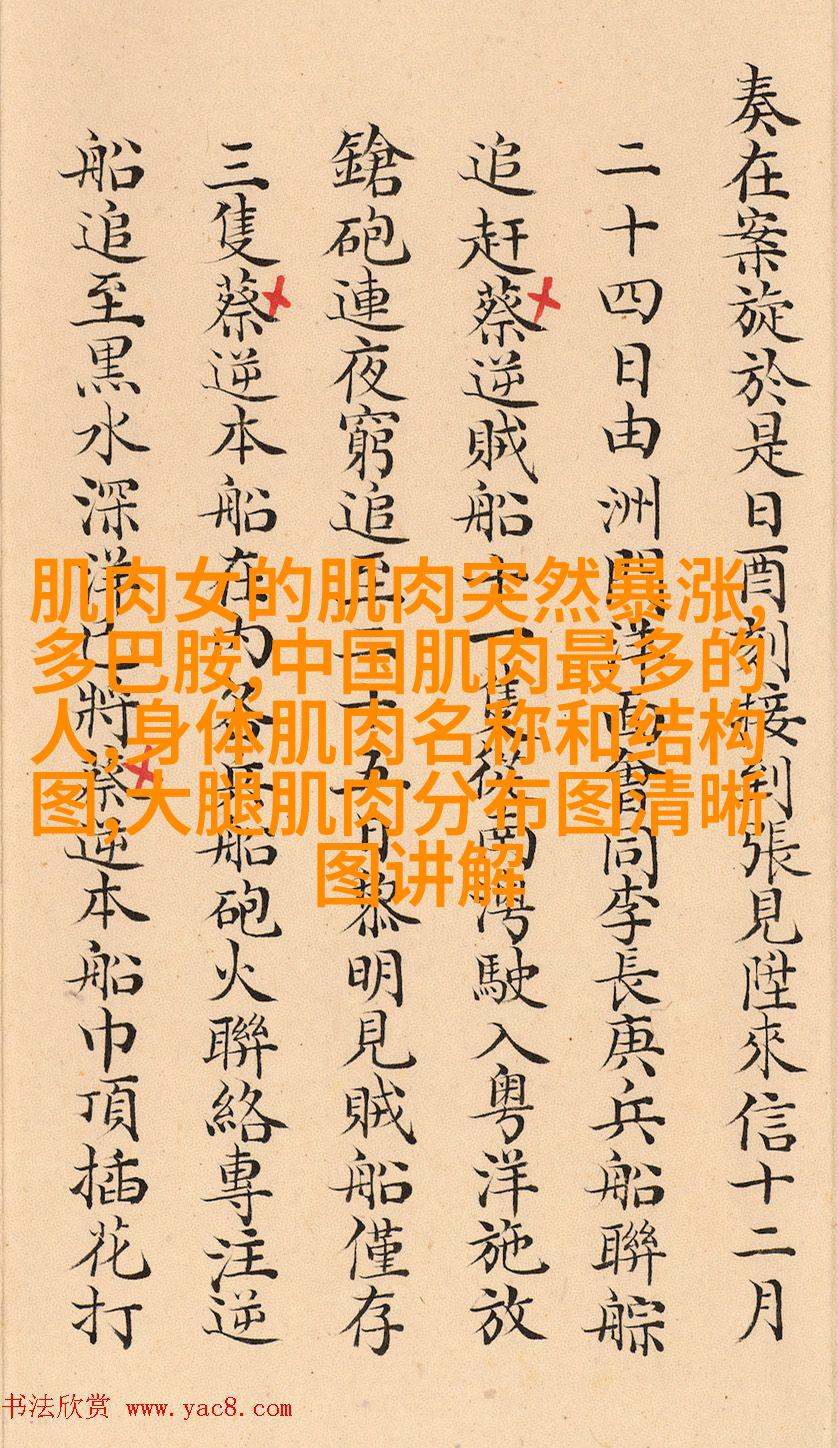 奏在案旋於是日酉刻接到張見陞來信十二月
二十四日由洲洋面會同李長庚兵船聯䑸
追赶蔡逆賊船十一隻從灣駛入粤洋施放
鎗砲連夜窮追至二十五日黎明見賊船僅存
三隻蔡逆本船在内各兵船砲火聯絡專注逆
船追至黒水深洋已將蔡逆本船巾頂插花打
肌肉女的肌肉突然暴涨,
多巴胺,中国肌肉最多的
人,身体肌肉名称和结构
图,大腿肌肉分布图清晰
图讲解
书法欣赏 www.yac8.com